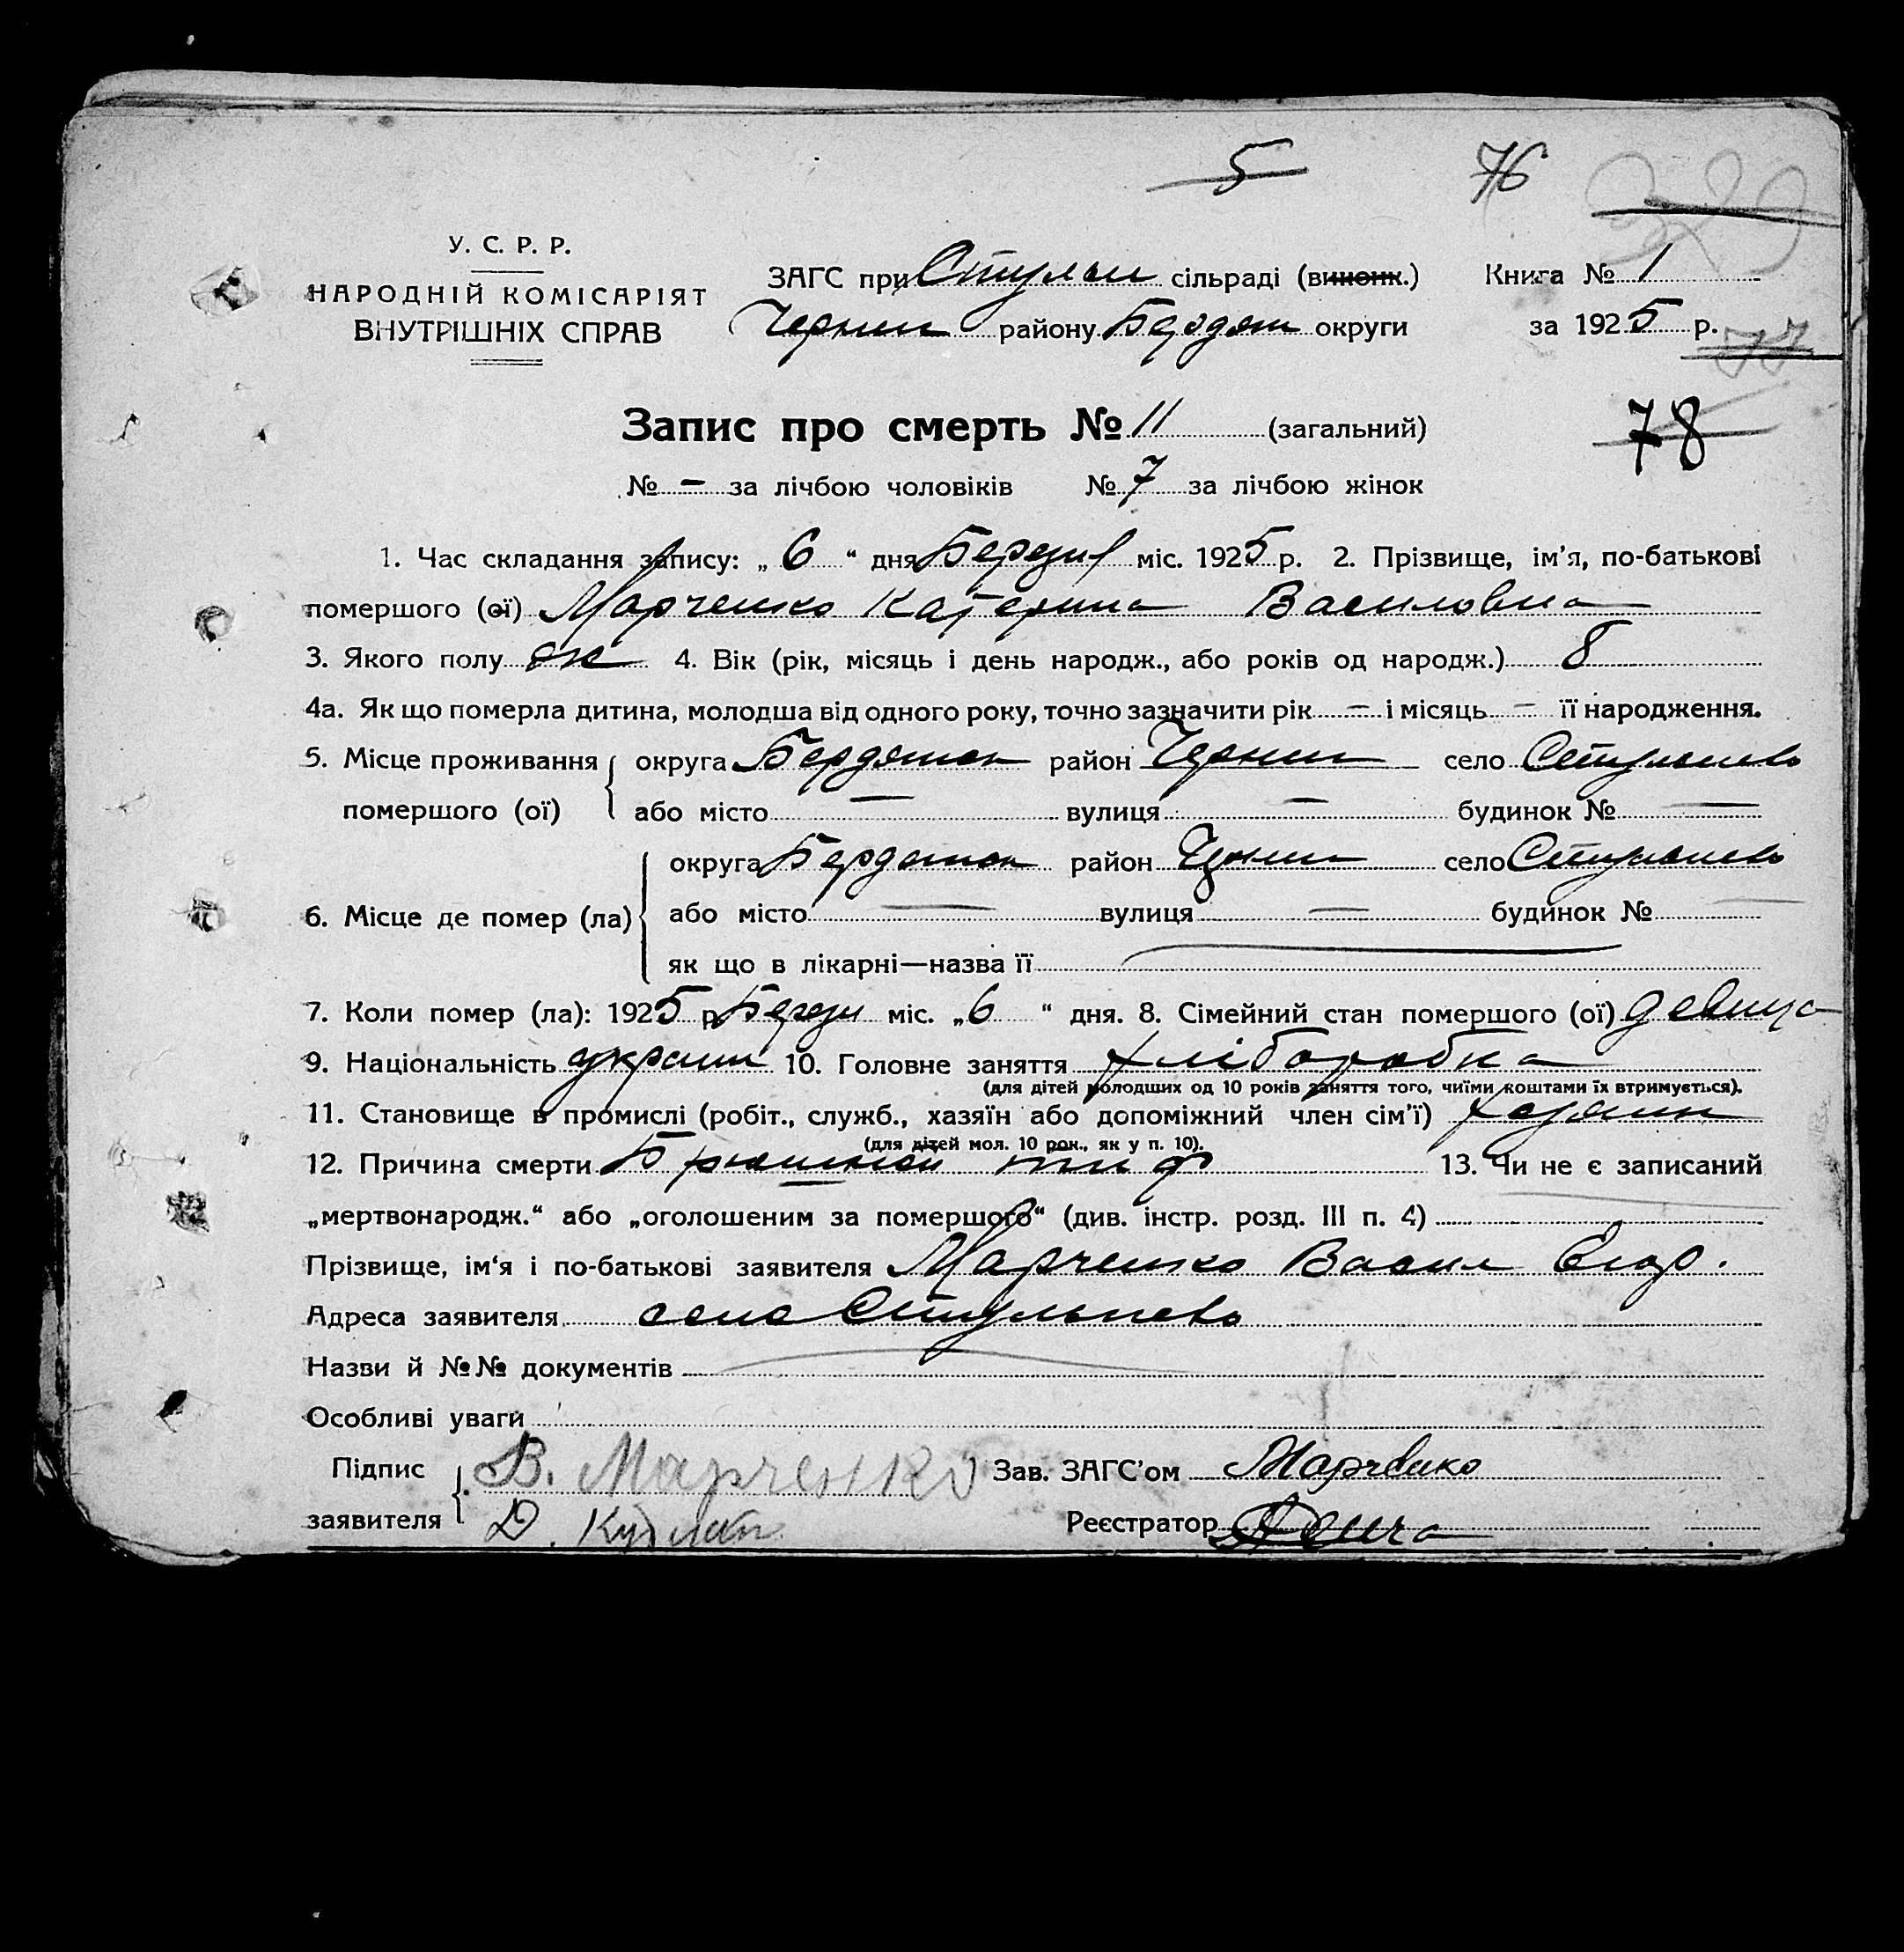 5 76 329
У. С. Р. Р.
НАРОДНІЙ КОМІСАРІЯТ
ВНУТРІШНІХ СПРАВ
ЗАГС при Стульн сільраді (виконк.) Книга № 1
Черниг району Бердян округи за 1925 р.
77
Запис про смерть № 11 (загальний)
78
№ – за лічбою чоловіків № 7 за лічбою жінок
1. Час складання запису: „ 6 “ дня Березня міс. 1925 р. 2. Прізвище, ім’я, по-батькові
помершого (ої) Марченко Катерина Василовна
3. Якого полу ж 4. Вік (рік, місяць і день народж., або років од народж.) 8
4а. Як що померла дитина, молодша від одного року, точно зазначити рік – і місяць – її народження.
5. Місце проживання округа Бердянск район Черниг село Стульнево
помершого (ої) або місто — вулиця — будинок № —
округа Бердянск район Черниг село Стульнево
6. Місце де помер (ла) або місто — вулиця — будинок № —
як що в лікарні—назва її
7. Коли помер (ла): 1925 р. Березн міс. „6 “ дня. 8. Сімейний стан помершого (ої) девица
9. Національність украин 10. Головне заняття хліборобка
(для дітей молодших од 10 років заняття того, чиїми коштами їх втримується).
11. Становище в промислі (робіт., служб., хазяїн або допоміжний член сім’ї) хазяин
(для дітей мол. 10 рок., як у п. 10).
12. Причина смерти Брюшной тиф 13. Чи не є записаний
„мертвонародж.“ або „оголошеним за помершого“ (див. інстр. розд. III п. 4)
Прізвище, ім‘я і по-батькові заявителя Марченко Васил Егор.
Адреса заявителя село Стульнево
Назви й №№ документів
Особливі уваги
Підпис В. Марченко Зав. ЗАГС’ом Марченко
заявителя Д. Реєстратор